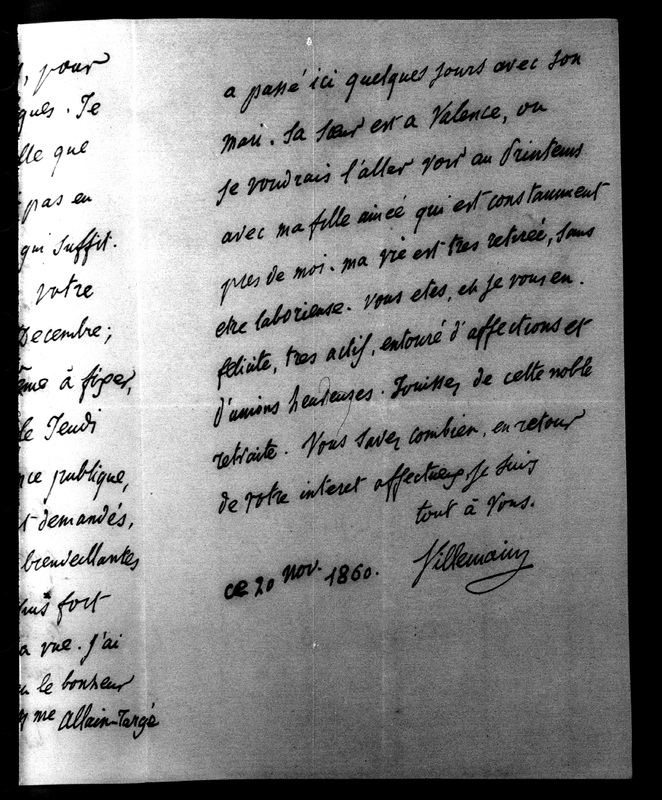 pour
ques. Je
lle que
pas en
qui suffit.
votre
Decembre;
à fixer,
le Jeudi
ce publique,
demandés,
bienveillantes
plus fort
a vue. J'ai
le bonheur
me Allain-Targé
a passé ici quelques jours avec son
mari. Sa sœur est a Valence, ou
je voudrais l'aller voir au Printems
avec ma fille aineé qui est constamment
pres de moi. ma vie est tres retireé, sans
etre laborieuse. vous etes, et je vous en
felicite, tres actif, entouré d'affections et
d'unions heureuses. Jouissez de cette noble
retraite. Vous savez combien, en retour
de votre interet affectueux, je suis
tout à Vous.
Villemain
ce 20 nov. 1860.